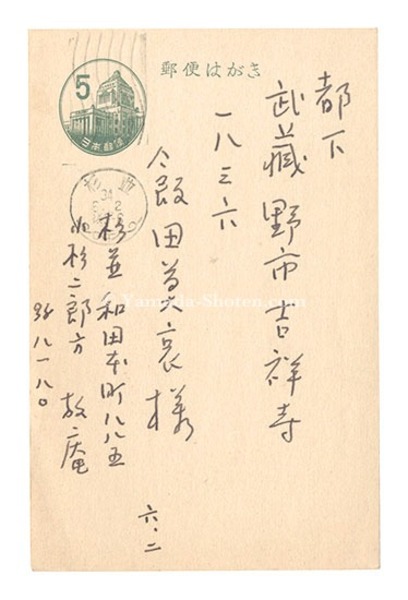 郵便はがき
5
日本郵便
都下
武蔵野市吉祥寺
一八三六
飯田善哀様
杉並和田本町八八五
小杉二郎方 放庵
六、二
© Yamada-Shoten.com